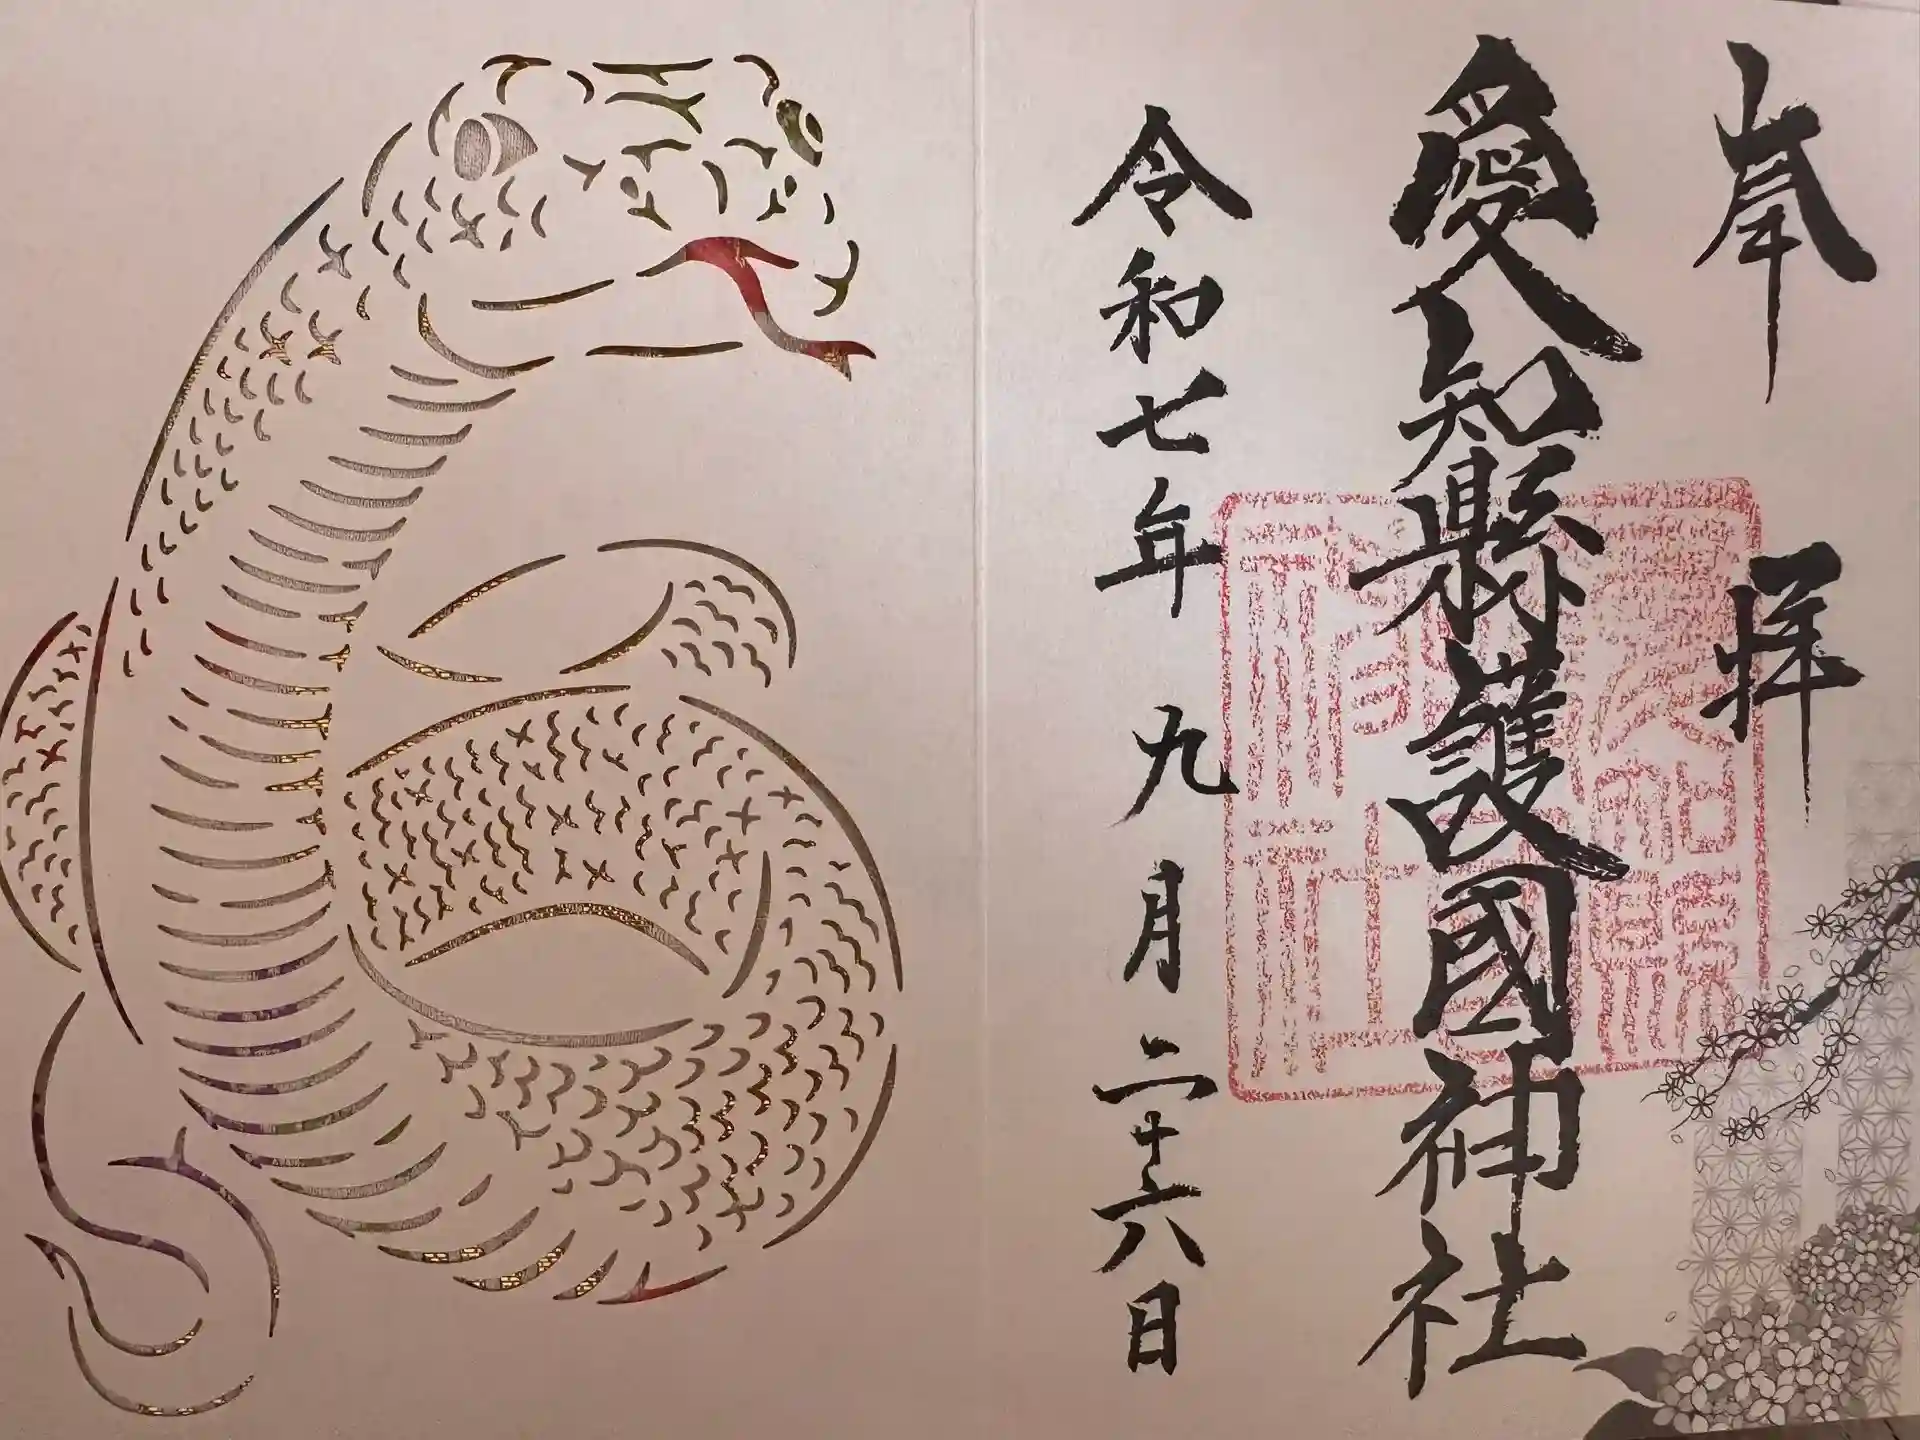 奉拝
愛知縣護國神社
令和七年九月二十六日